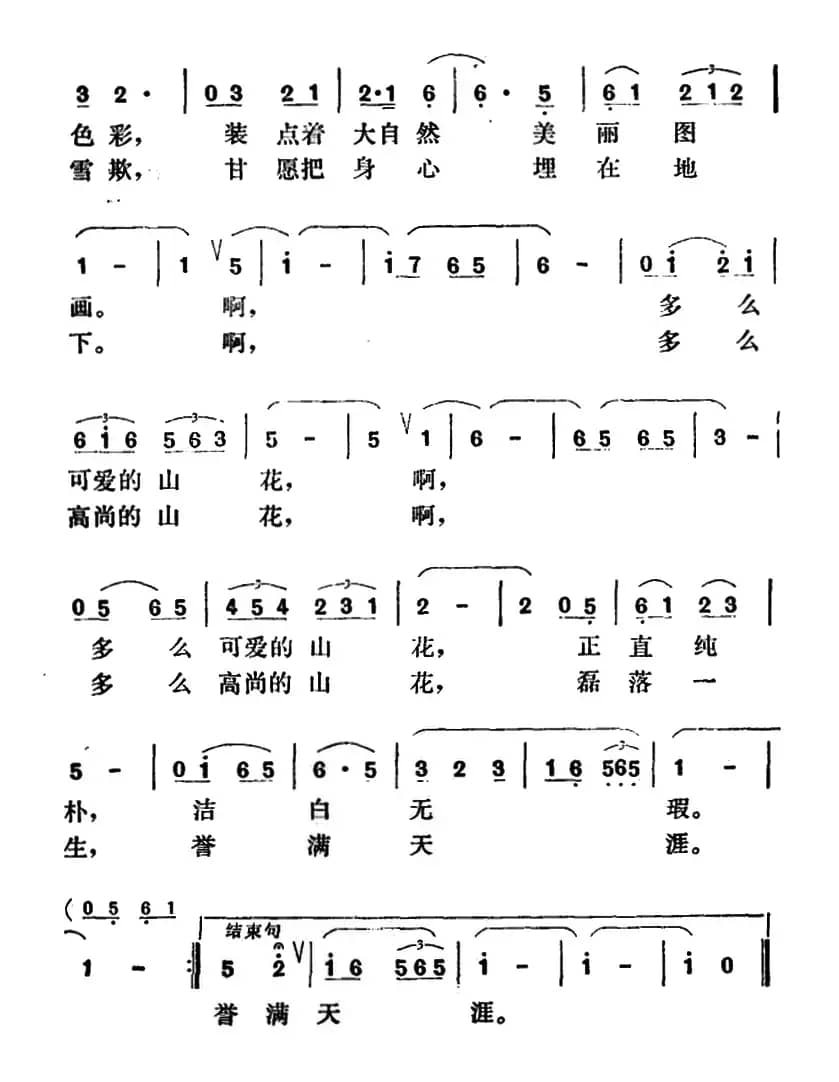 3 2· | 0 3 2 1 | 2·1 6 | 6· 5 | 6 1 2 1 2 |
色彩， 装 点着 大自然 美 丽 图
雪欺， 甘 愿把 身 心 埋 在 地
1 - | 1 V 5 | i - | i 7 6 5 | 6 - | 0 i 2 i |
画。 啊， 多 么
下。 啊， 多 么
6 i 6 5 6 3 | 5 - | 5 V 1 | 6 - | 6 5 6 5 | 3 - |
可爱的 山 花， 啊，
高尚的 山 花， 啊，
0 5 6 5 | 4 5 4 2 3 1 | 2 - | 2 0 5 | 6 1 2 3 |
多 么 可爱的 山 花， 正 直 纯
多 么 高尚的 山 花， 磊 落 一
5 - | 0 i 6 5 | 6·5 | 3 2 3 | 1 6 5 6 5 | 1 - |
朴， 洁 白 无 瑕。
生， 誉 满 天 涯。
(0 5 6 1
结束句
1 - :| 5 2 V | i 6 5 6 5 | i - | i - | i 0 |
誉 满 天 涯。